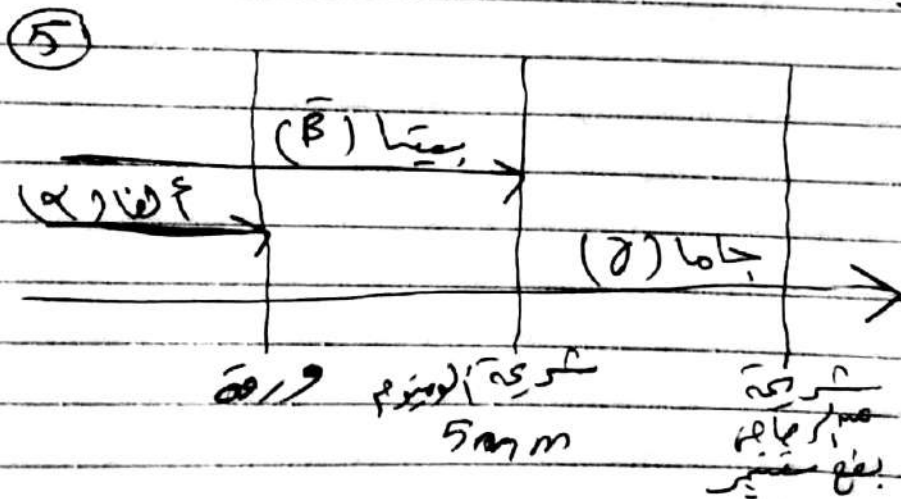 5
بيتا (β̄)
ألفا (α)
جاما (γ)
ورقة
شريحة ألومنيوم
5mm
شريحة
بضع سنتيمتر